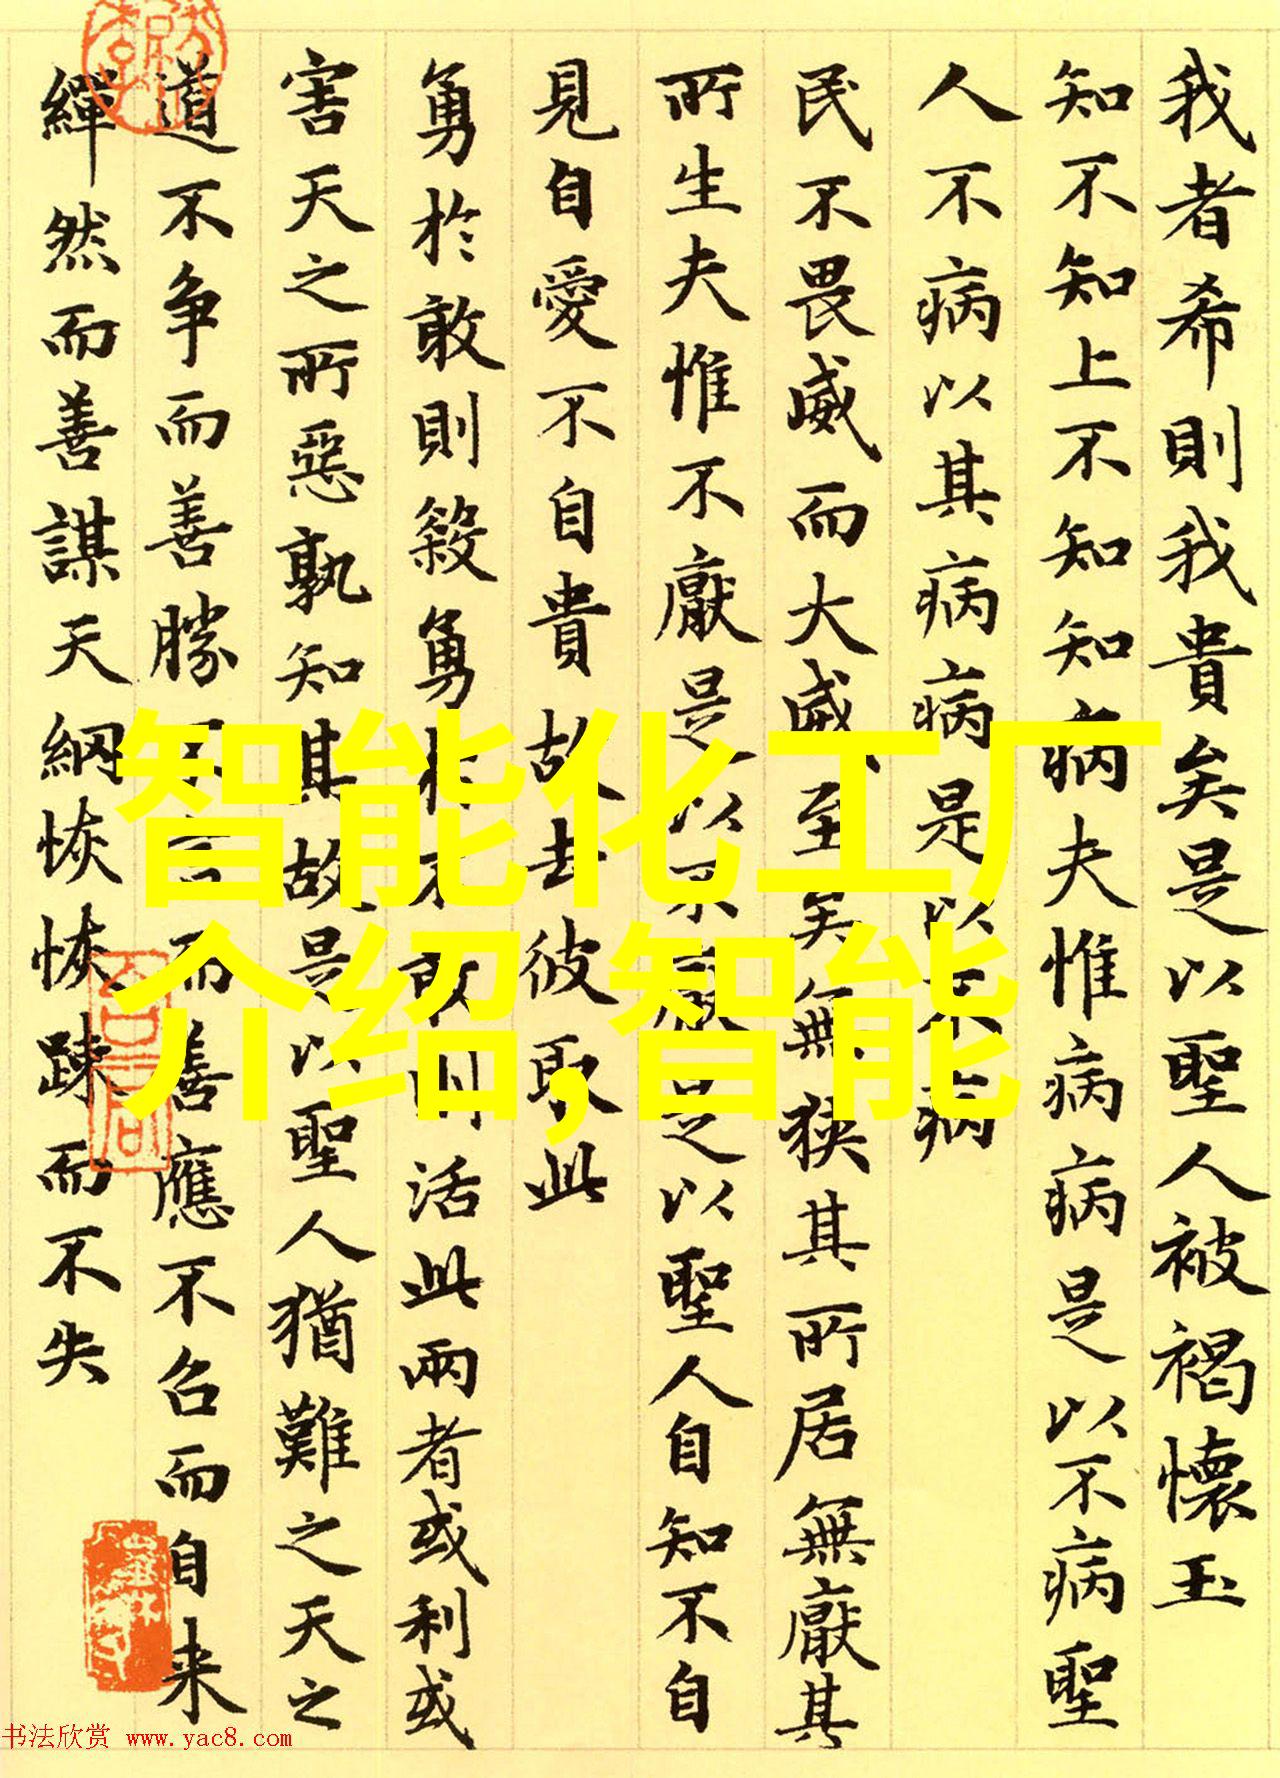 我者希則我貴矣是以聖人被褐懷玉
知不知上不知知病夫惟病病是以不病聖
人不病以其病病是以不病
民不畏威而大威至矣無狹其所居無厭其
所生夫惟不厭是以不厭是以聖人自知不自
見自愛不自貴故去彼取此
勇於敢則殺勇於不敢則活此兩者或利或
害天之所惡孰知其故是以聖人猶難之天之
道不争而善勝不言而善應不召而自来
繟然而善謀天網恢恢踈而不失
智能化工厂
介绍,智能
书法欣赏 www.yac8.com